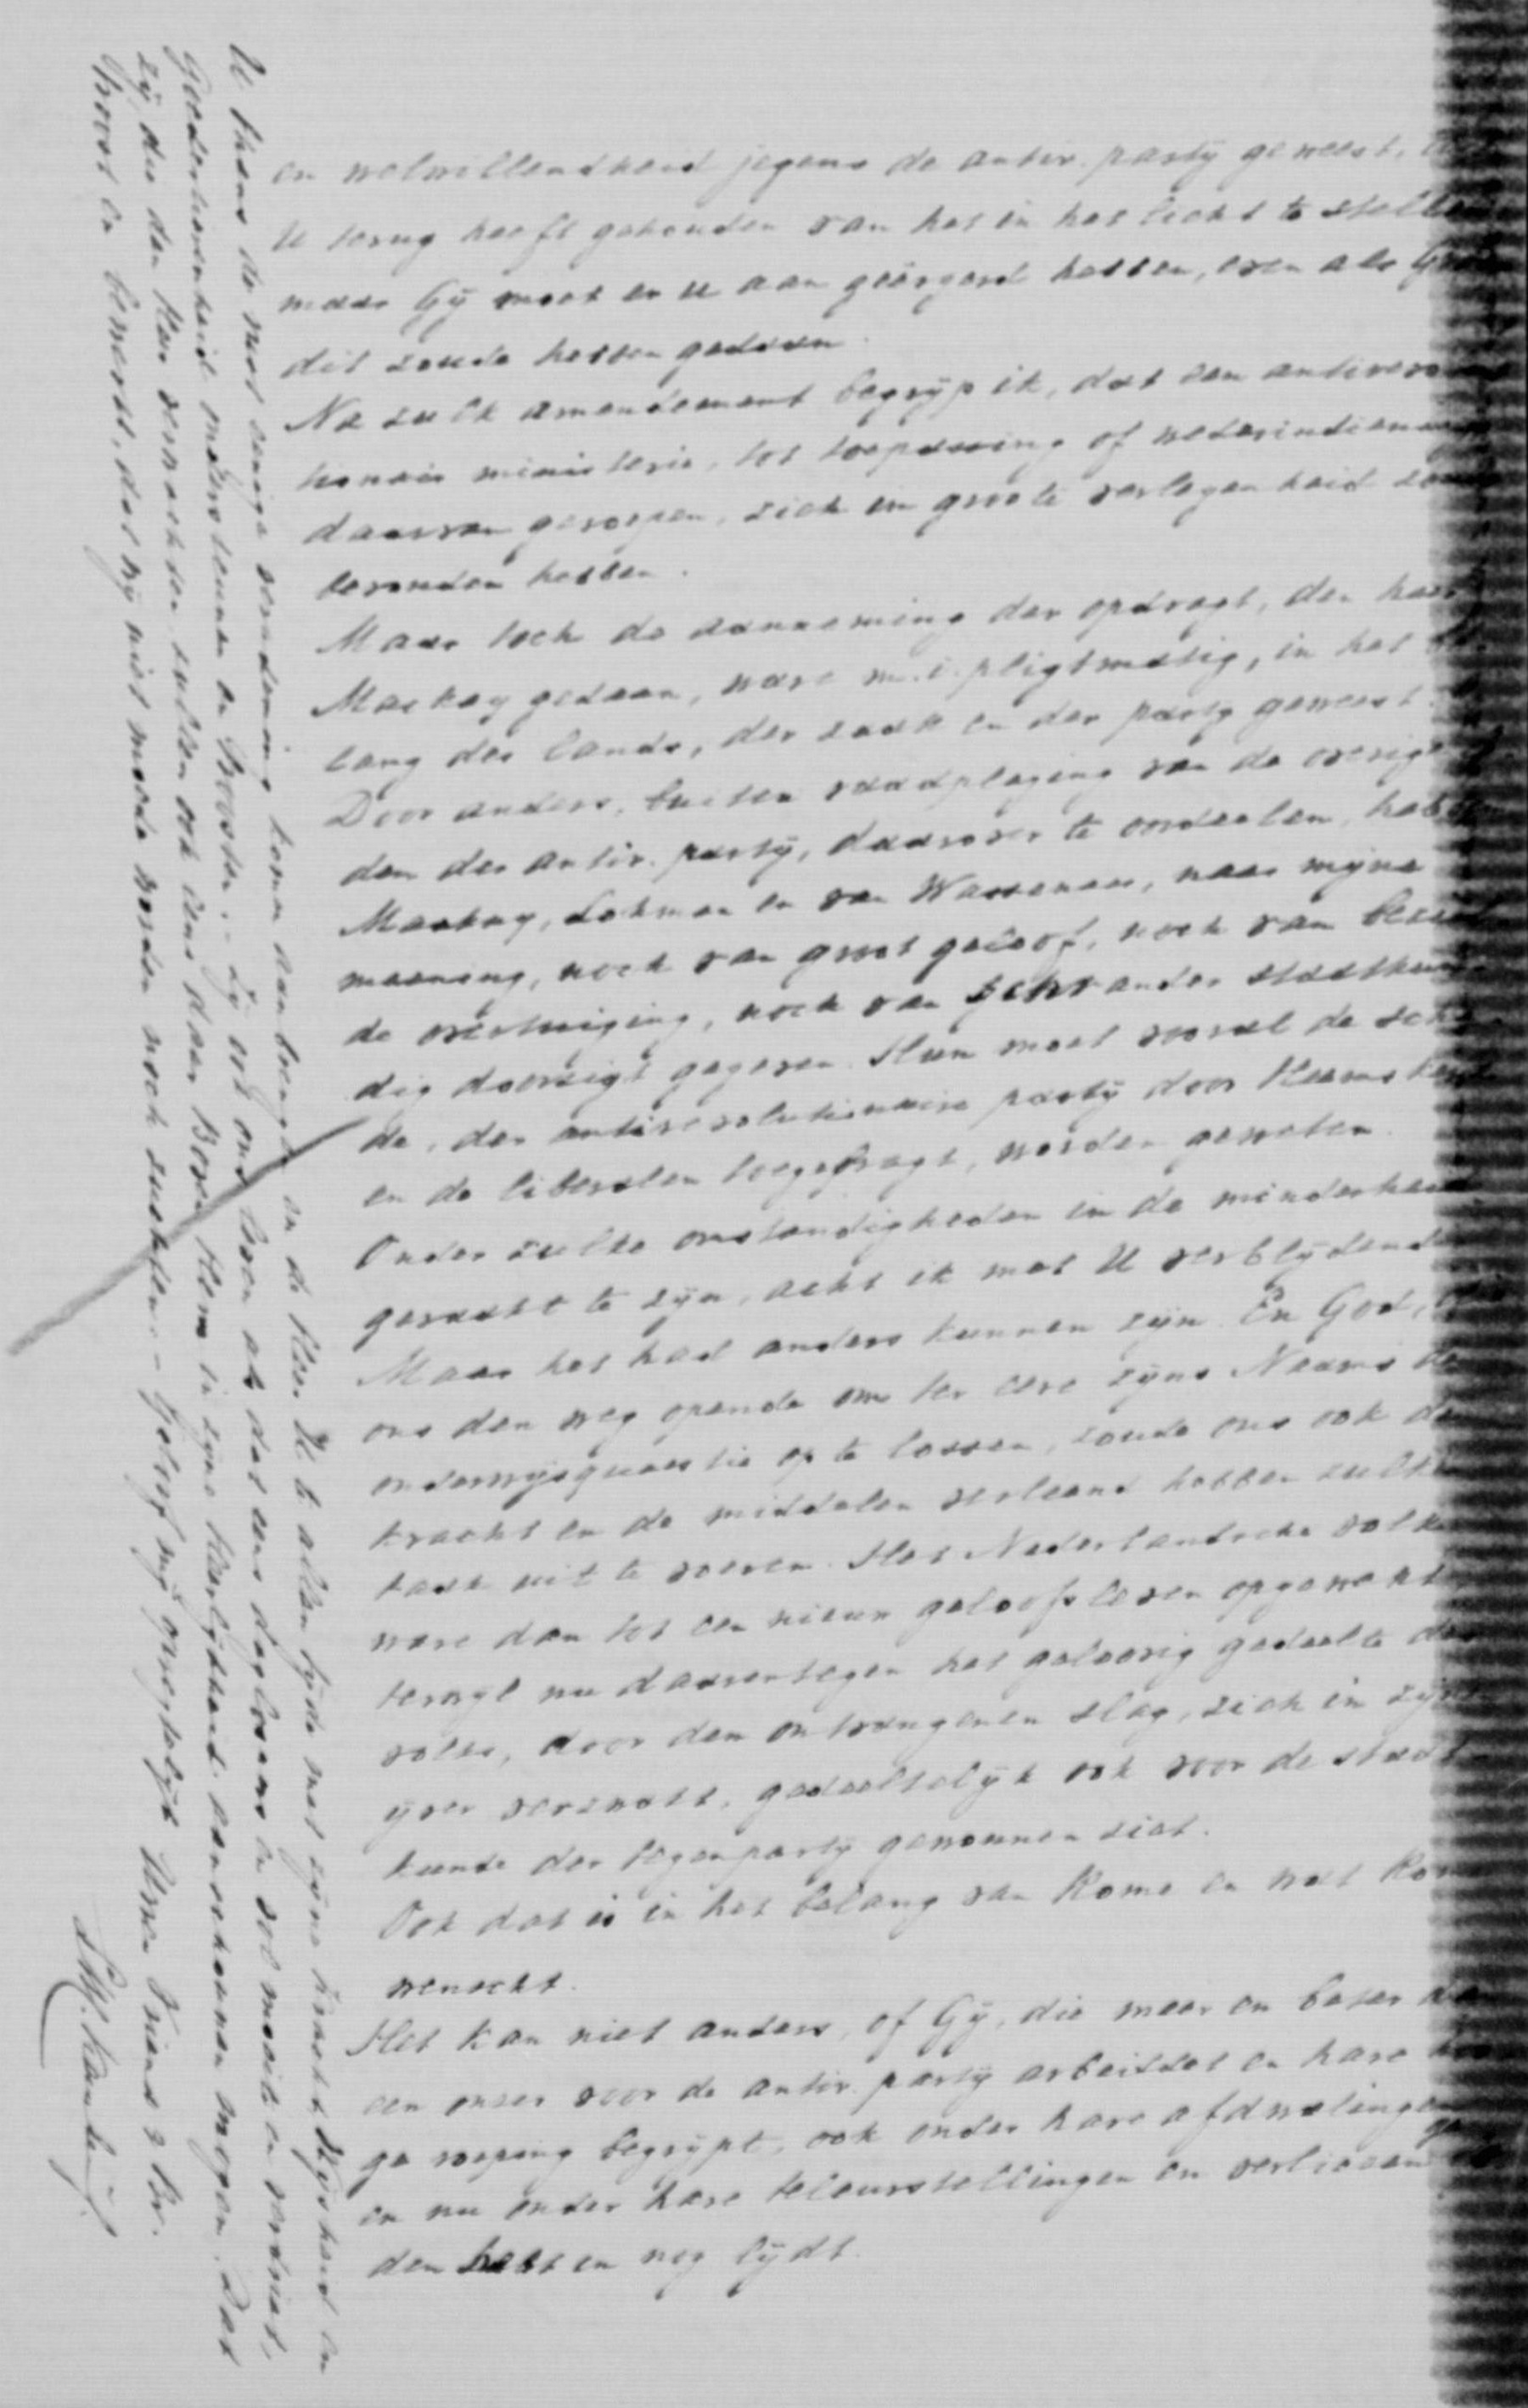 en welwillendheid jegens de antir. party geweest,
U terug heeft gehouden van het in het licht te stellen
maar Gy moet er u aan geërgerd hebben, even als
dit zoude hebben gedaan.
Na zulk amendement begryp ik, dat een antirevo
tionair ministerie, tot toepassing of wederindiening
daarvan geroepen, zich in groote verlegenheid zou
bevonden hebben.
Maar toch de aanneming der opdragt, den heer
Mackay gedaan, ware m.i. pligtmatig, in het be
lang des lands, der zaak en der party geweest.
Door anders, buiten raadpleging van de overige
den der antir. party, daarover te oordeelen, hebben
Mackay, Lohman en van Wassenaer, naar myne
meening, noch van groot geloof, noch van
de overtuiging, noch van schrander staatkun
dig doorzigt gegeven. Hun moet vooral de scha
de, der antirevolutionaire party door Heemskerk
en de liberalen toegebragt, worden geweten.
Onder zulke omstandigheden in de minderheid
geraakt te zyn, acht ik met U verblydend
Maar het had anders kunnen zyn. En God,
ons den weg opende om ter eere zyns Naams de
onderwysquaestie op te lossen, zoude ons ook de
kracht en de middelen verleend hebben zulke
taak uit te voeren. Het Nederlandsche volk
ware dan tot een nieuw geloofsleven opgewekt
terwyl nu daarentegen het geloovig gedeelte des
volks, door den ontvangenen slag, zich in zyn
yver verzwakt, gedeeltelyk ook voor de staat
kunde der tegenparty gewonnen ziet.
Ook dat is in het belang van Rome en wat Rome
wenscht.
Het kan niet anders, of Gy, die meer en beter dan
een onzer voor de antir. party arbeiddet en hare
ge roeping begrypt, ook onder hare afdwalingen
en nu onder hare teleurstellingen en verliezen
den hebt en nog lydt.
U thans de met eenige verademing komen aanbengen en de Heer U te allen tyde met zyne kracht, wysheid en
goedertierenheid ondersteune en trooste. Zy ook ons leven als dat eens dagloners en vol moeite en verdriet,
zy die den Heer verwachten zullen ook eens daar Boven Hem in zyne Heerlykheid aanschouwen mogen. Dat
troost en bewerkt, dat wy niet moede worden noch Geloof my onveranderlyk Uwen Vriend & Br.